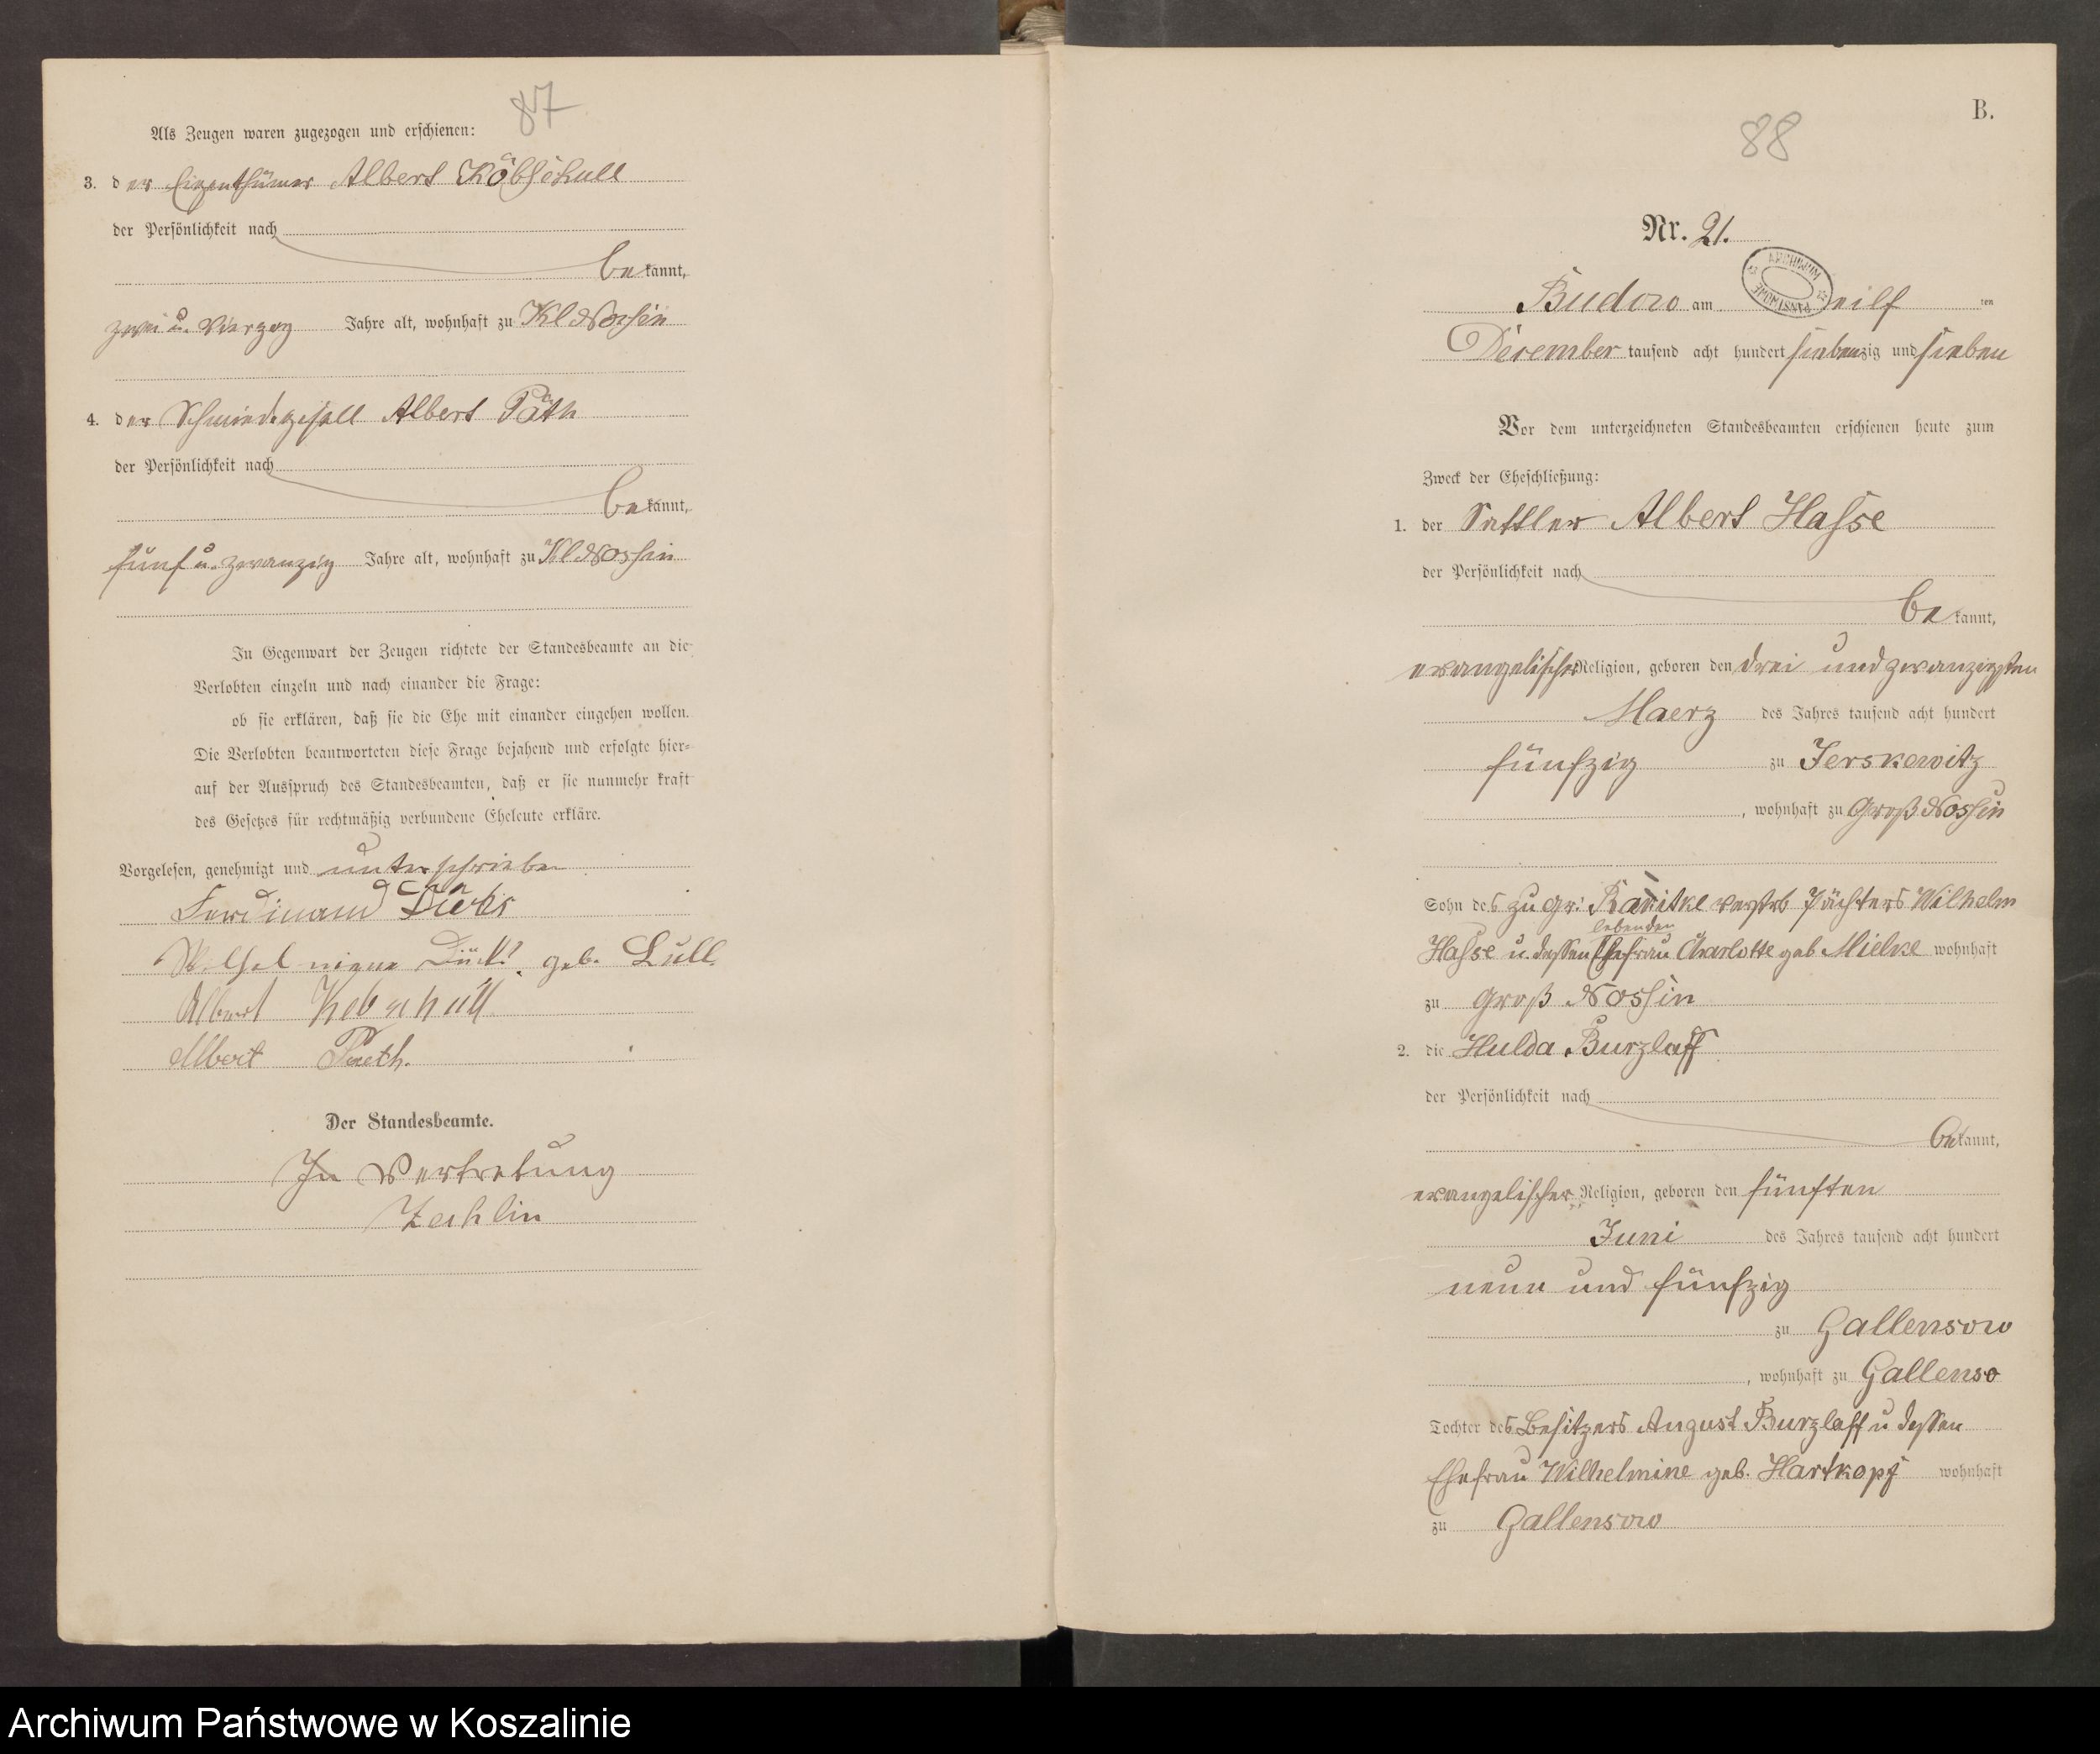 87
Als Zeugen waren zugezogen und erschienen:
3. der Eigenthümer Albert Köbschull
der Persönlichkeit nach
bekannt,
zwei u. vierzig Jahre alt, wohnhaft zu Kl Nossin
4. der Schmiedegesell Albert Päth
der Persönlichkeit nach
bekannt,
fünf u. zwanzig Jahre alt, wohnhaft zu Kl Nossin
In Gegenwart der Zeugen richtete der Standesbeamte an die
Verlobten einzeln und nach einander die Frage:
ob sie erklären, daß sie die Ehe mit einander eingehen wollen.
Die Verlobten beantworteten diese Frage bejahend und erfolgte hier-
auf der Ausspruch des Standesbeamten, daß er sie nunmehr kraft
des Gesetzes für rechtmäßig verbundene Eheleute erkläre.
Vorgelesen, genehmigt und unterschrieben
Ferdinand
geb. Lüll
Albert Kebschull
Albert Paeth.
Der Standesbeamte.
In Vertretung
Zechlin
B.
88
Nr. 21.
ARCHIWUM PAŃSTWOWE
Budow am eilf ten
December tausend acht hundert siebenzig und sieben
Vor dem unterzeichneten Standesbeamten erschienen heute zum
Zweck der Eheschließung:
1. der Sattler Albert Hasse
der Persönlichkeit nach
bekannt,
evangelischer Religion, geboren den drei und zwanzigsten
Maerz des Jahres tausend acht hundert
fünfzig zu Jerskewitz
, wohnhaft zu Groß Nossin
Sohn des zu Gr. verstrb Pächters Wilhelm
lebenden
Hasse u. dessen Ehefrau Charlotte geb Mielke wohnhaft
zu Groß Nossin
2. die Hulda Burzlaff
der Persönlichkeit nach
bekannt,
evangelischer Religion, geboren den fünften
Juni des Jahres tausend acht hundert
neun und fünfzig
zu Gallensow
, wohnhaft zu Gallenso
Tochter des Besitzers August Burzlaff u dessen
Ehefrau Wilhelmine geb. Hartkopf wohnhaft
zu Gallensow
Archiwum Państwowe w Koszalinie